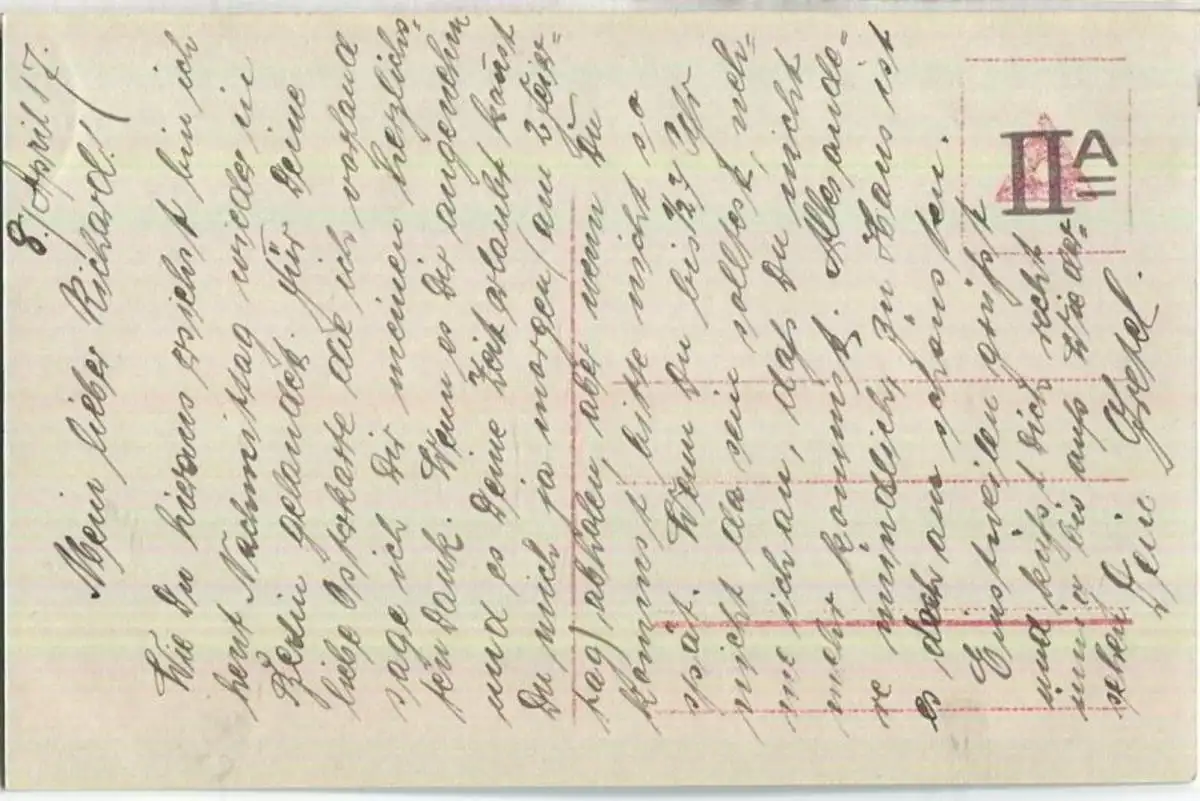 8. April 17.
Mein lieber Richard!
Wie Du hieraus ersiehst bin ich
heut Nachmittag wieder in
Berlin gelandet. Für Deine
liebe Osterkarte die ich vorfand
sage ich Dir meinen herzlichs=
ten Dank. Wenn es Dir angenehm
und es Deine Zeit erlaubt kannst
Du mich ja morgen (am 2. Feier=
tag) abholen, aber wenn Du
kommst bitte nicht so
spät. Wenn Du bis 1/2 3 Uhr
nicht da sein solltest, neh=
me ich an, daß Du nicht
mehr kommst. Alles ande=
re mündlich, zu Haus ist
es doch am schönsten.
Einstweilen grüßt
und küßt Dich recht
innig bis aufs Wieder=
sehen
Dein Gretel.
II A